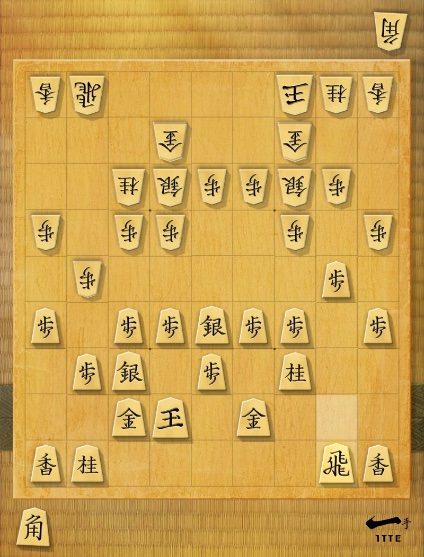 角
香 飛 王 桂 香
金 金
桂 銀 歩 歩 銀 歩
歩 歩 歩 歩 歩
歩 歩
歩 歩 歩 銀 歩 歩 歩
歩 銀 歩 桂
金 王 金
香 桂 飛 香
角
一手
ITTE